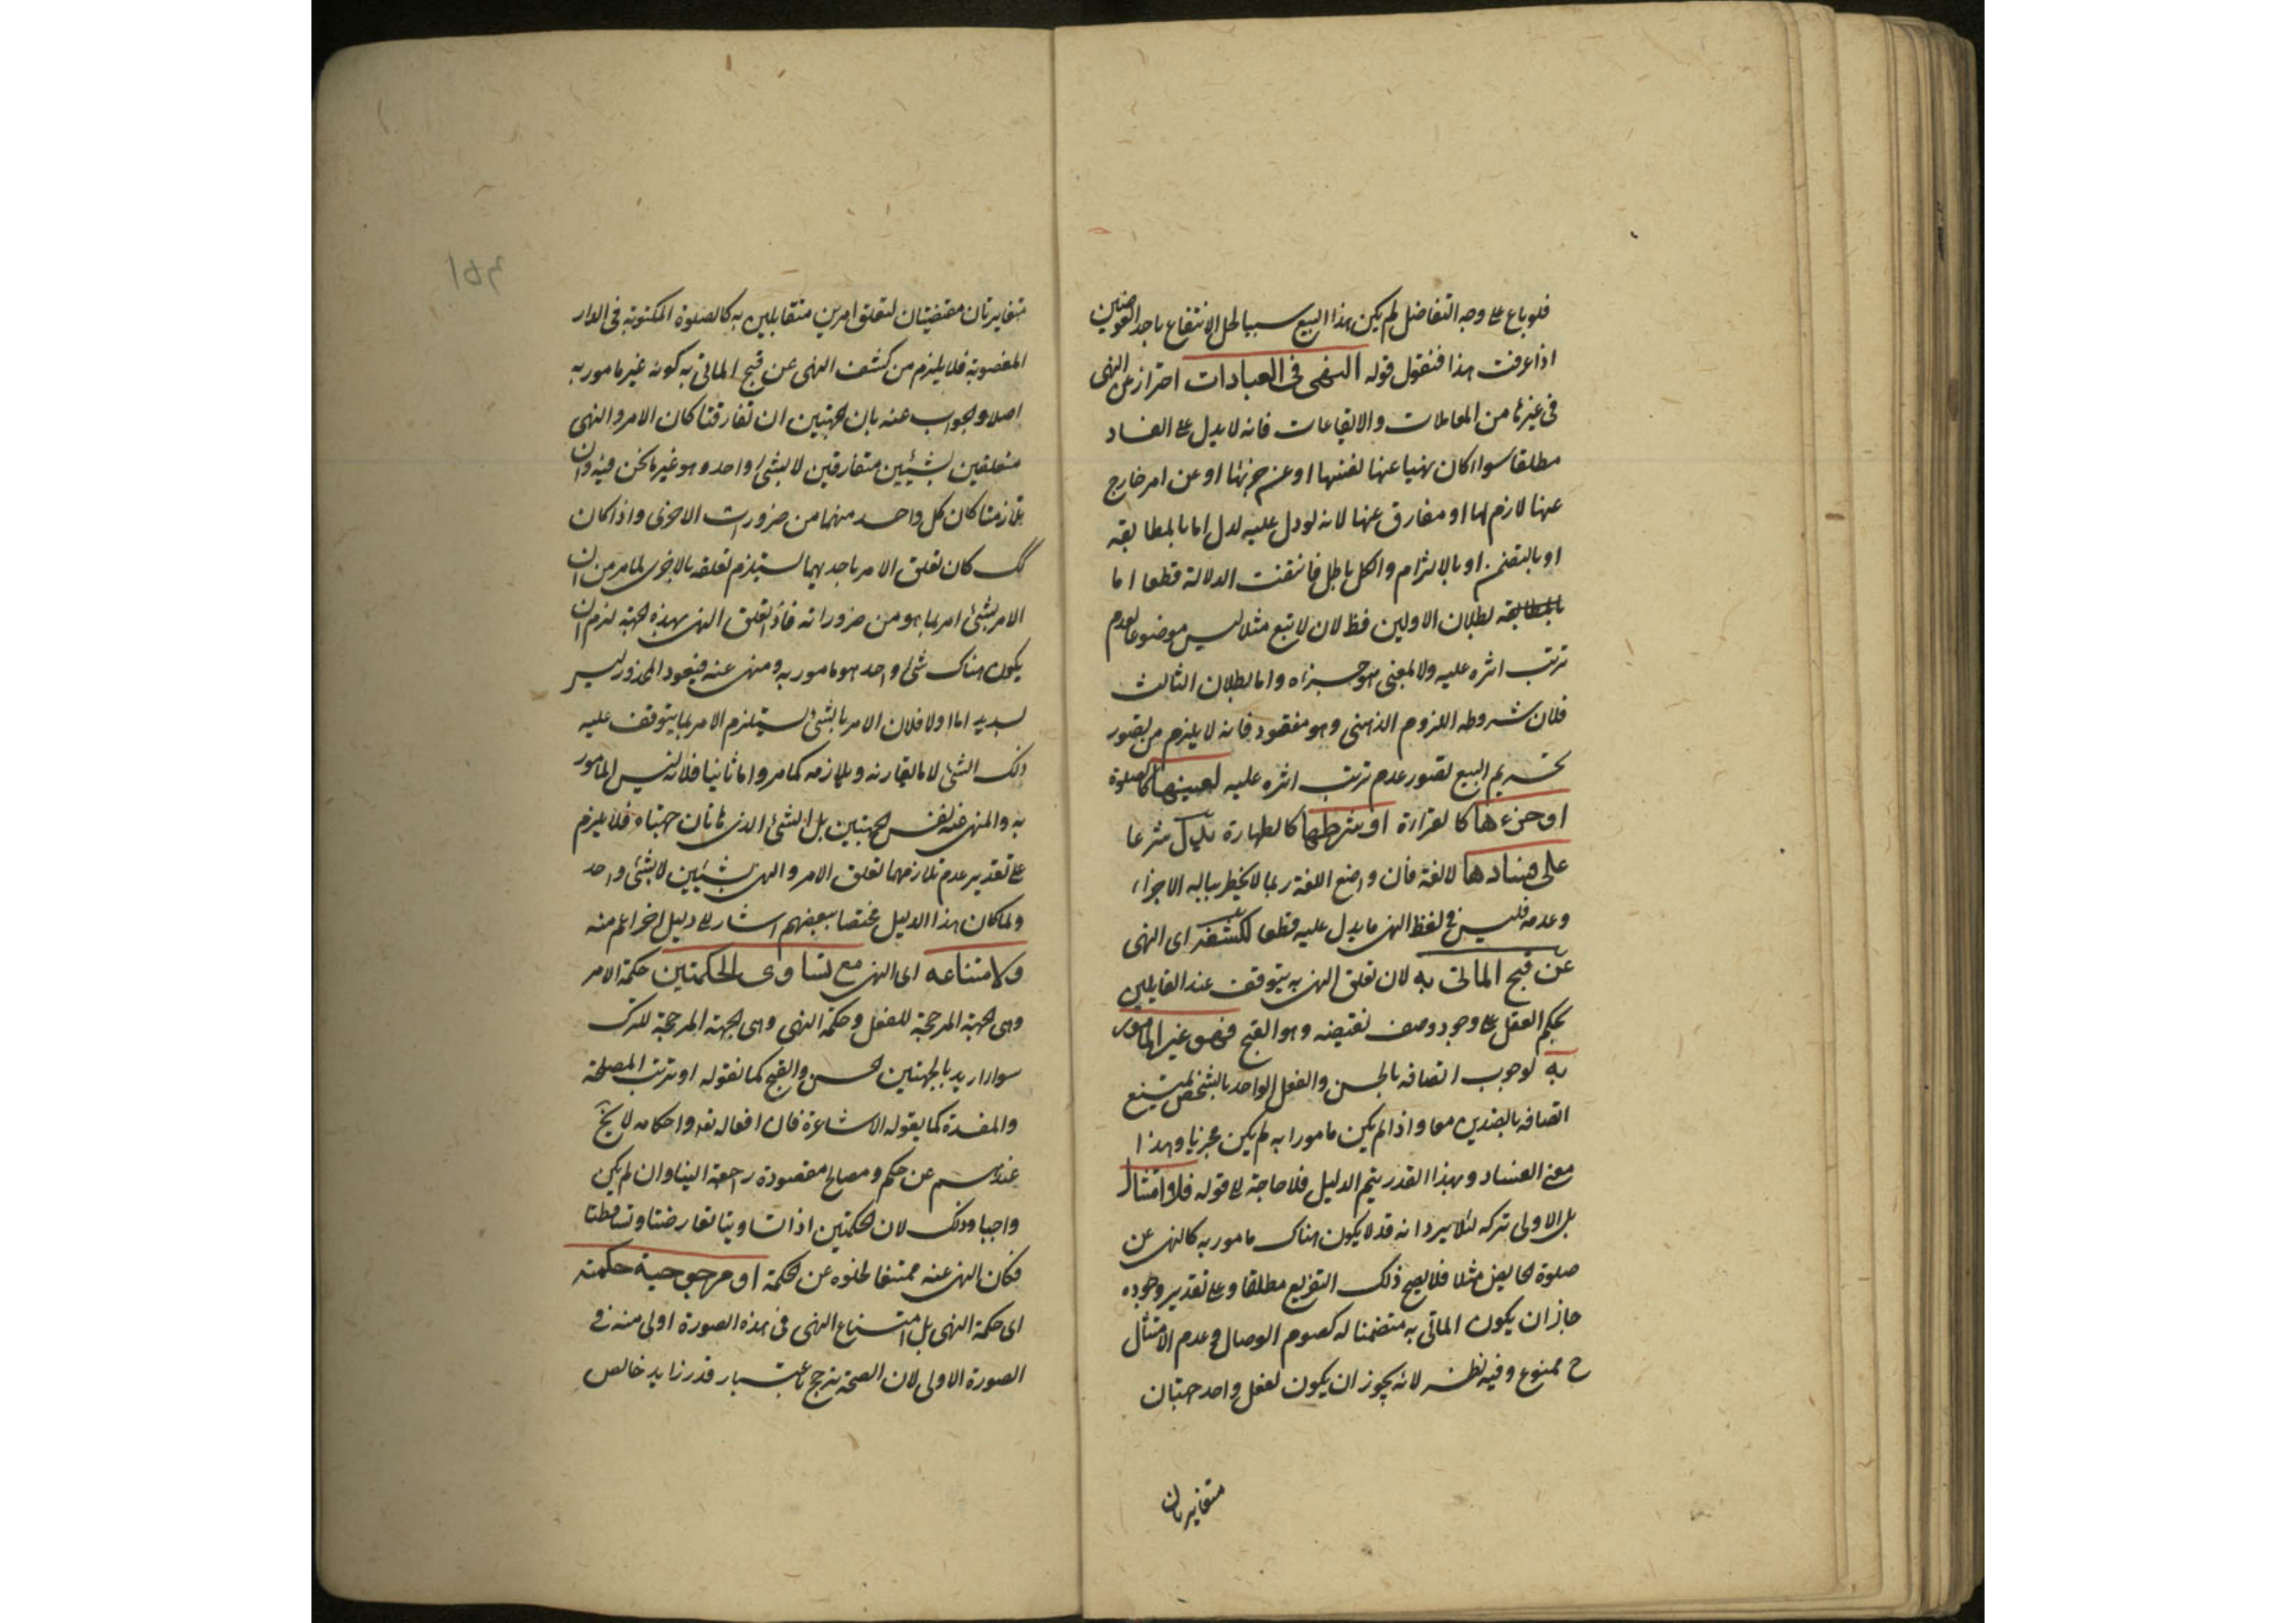 فلو باع على وجه التفاضل لم يكن هذا البيع سببا لحل الانتفاع باحد العوضين
اذا عرفت هذا فنقول قوله النهى فى العبادات احتراز عن النهى
فى غيرها من المعاملات والايقاعات فانه لا يدل على الفساد
مطلقا سواء كان نهيا عنها لعينها او عن جزئها او عن امر خارج
عنها لازم لها او مفارق عنها لانه لو دل عليه لدل اما بالمطابقة
او بالتضمن او بالالتزام والكل باطل فانتفت الدلالة قطعا اما
بطلان الاولين فظ لان لا تبع مثلا ليس موضوعا لعدم
ترتب اثره عليه ولا لمعنى هو جزءه واما بطلان الثالث
فلان شروطه اللزوم الذهنى وهو مفقود فانه لا يلزم من تصور
تحريم البيع تصور عدم ترتب اثره عليه لعينها كالصلوة
او جزءها كالقراءة او شرطها كالطهارة يدل شرعا
على فسادها لا لغة فان واضع اللغة ربما لا يخطر بباله الاجزاء
وعدمه فليس فى لفظ النهى ما يدل عليه قطعا لكشفه اى النهى
عن قبح الماتى به لان تعلق النهى به يتوقف عند القايلين
بحكم العقل على وجود وصف يقتضيه وهو القبح فهو غير المامور
به لوجوب اتصافه بالحسن والفعل الواحد بالشخص يمتنع
اتصافه بالضدين معا واذا لم يكن مامورا به لم يكن مجزيا وهذا
معنى الفساد وبهذا القدر يتم الدليل فلا حاجة الى قوله فلا امتثال
بل الاولى تركه لئلا يرد انه قد لا يكون هناك مامور به كالنهى عن
صلوة الحايض مثلا فلا يصح ذلك التفريع مطلقا وعلى تقدير وجوده
جاز ان يكون الماتى به متضمنا له كصوم الوصال وعدم الامتثال
ح ممنوع وفيه نظر لانه يجوز ان يكون لفعل واحد جهتان
متغايرتان
متغايرتان مقتضيتان لتعلق امرين متقابلين به كالصلوة المكتوبة فى الدار
المغصوبة فلا يلزم من كشف النهى عن قبح الماتى به كونه غير مامور به
اصلا والجواب عنه بان الجهتين ان تفارقتا كان الامر والنهى
متعلقين بشيئين متفارقين لا بشئ واحد وهو غير ما نحن فيه وان
تلازمتا كان كل واحد منهما من ضرورات الاخرى واذا كان
كك كان تعلق الامر باحديهما يستلزم تعلقه بالاخرى لما مر من ان
الامر بشئ امر بما هو من ضروراته فاذا تعلق النهى بهذه الجهة لزم ان
يكون هناك شئ واحد هو مامور به ومنهى عنه فيعود المحذور ليس
بسديد اما اولا فلان الامر بالشئ يستلزم الامر بما يتوقف عليه
ذلك الشئ لا ما يقارنه ويلازمه كما مر واما ثانيا فلانه ليس المامور
به والمنهى عنه نفس الجهتين بل الشئ الذى هاتان جهتاه فلا يلزم
على تقدير عدم تلازمهما تعلق الامر والنهى بشيئين لا بشئ واحد
ولما كان هذا الدليل مختصا ببعضهم اشار الى دليل اخر اعم منه
ولامتناعه اى النهى مع تساوى الحكمتين حكمة الامر
وهى الجهة المرجحة للفعل وحكمة النهى وهى الجهة المرجحة للترك
سواء اريد بالجهتين الحسن والقبح كما نقوله او ترتب المصلحة
والمفسدة كما يقوله الاشاعرة فان افعاله تعه واحكامه لا يخ
عندهم عن حكم ومصالح مقصودة راجعة الينا وان لم يكن
واجبا وذلك لان الحكمتين اذا تساويتا تعارضتا وتساقطتا
فكان النهى عنه ممتنعا لخلوه عن الحكمة او مرجوحية حكمته
اى حكمة النهى بل امتناع النهى فى هذه الصورة اولى منه فى
الصورة الاولى لان الصحة يترجح باعتبار قدر زايد خالص